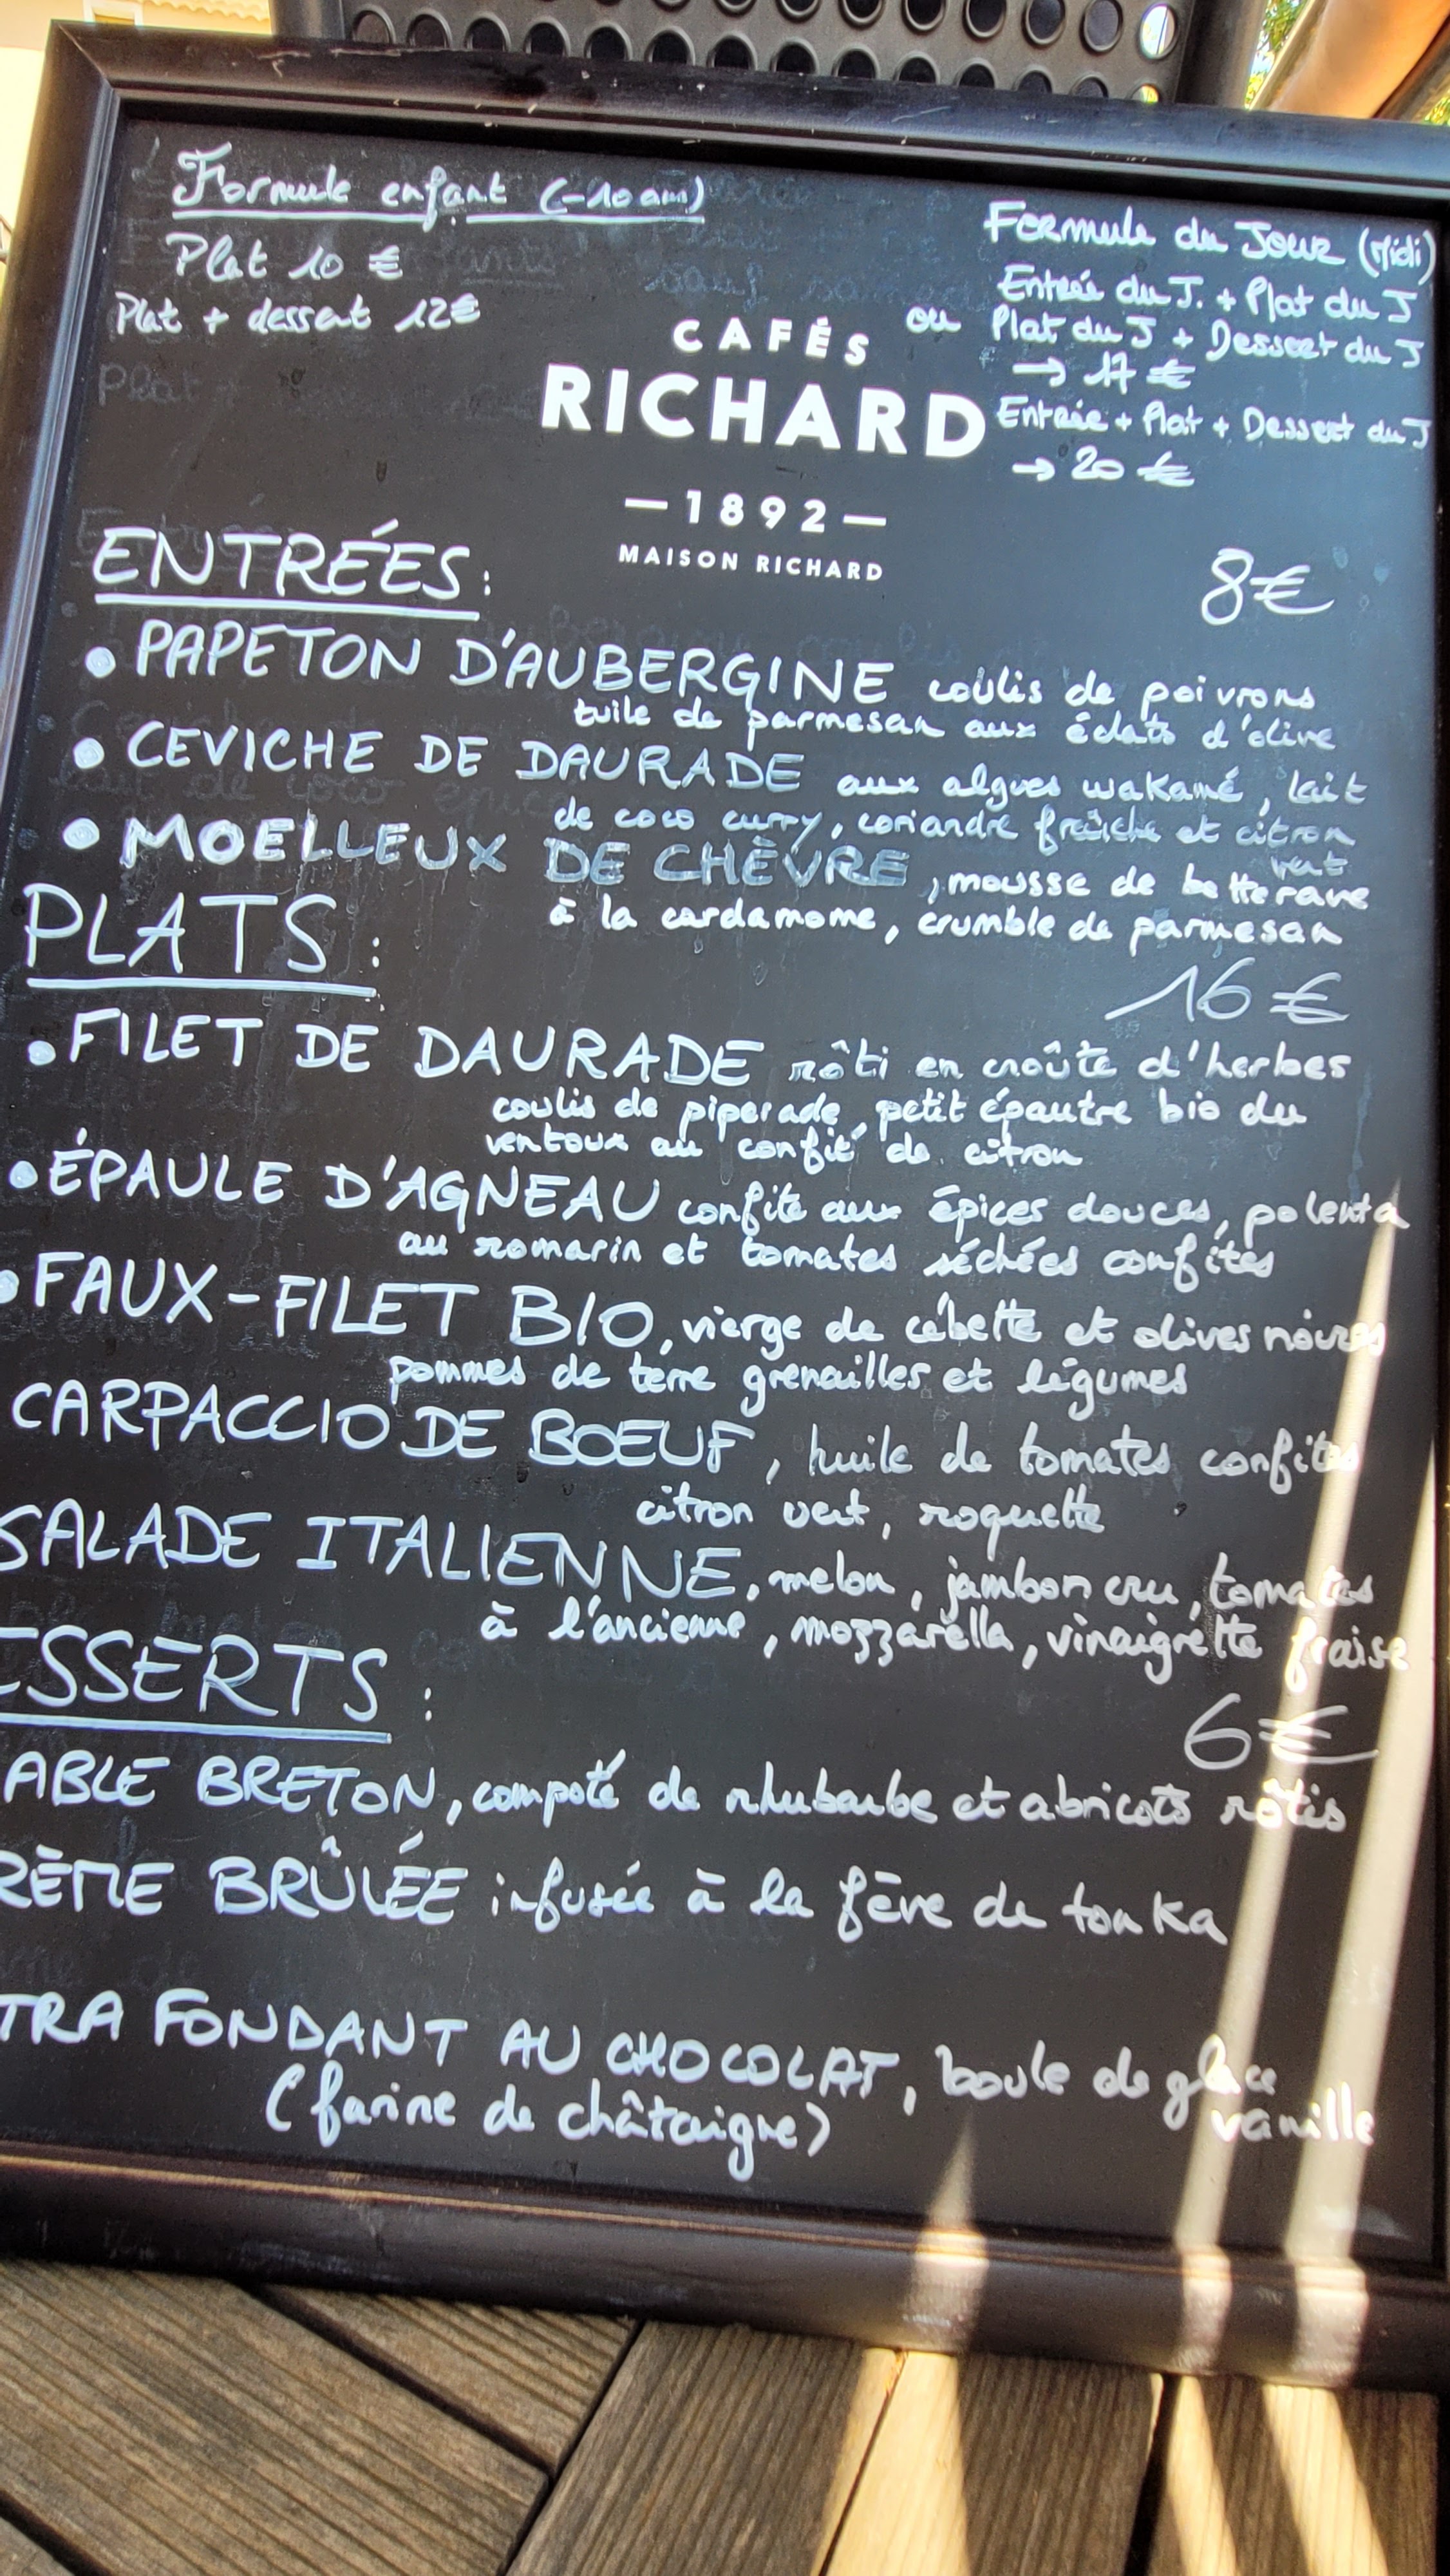 Formule enfant (-10 ans)
Plat 10 €
Plat + dessert 12€
Formule du Jour (Midi)
Entrée du J. + Plat du J
ou Plat du J + Dessert du J
→ 17 €
Entrée + Plat + Dessert du J
→ 20 €
CAFÉS
RICHARD
—1892—
MAISON RICHARD
ENTRÉES: 8€
• PAPETON D'AUBERGINE coulis de poivrons
tuile de parmesan aux éclats d'olive
• CEVICHE DE DAURADE aux algues wakamé, lait
de coco curry, coriandre fraîche et citron
vert
• MOELLEUX DE CHÈVRE, mousse de betterave
à la cardamome, crumble de parmesan
PLATS: 16 €
• FILET DE DAURADE rôti en croûte d'herbes
coulis de piperade, petit épautre bio du
ventoux au confit de citron
• ÉPAULE D'AGNEAU confite aux épices douces, polenta
au romarin et tomates séchées confites
• FAUX-FILET BIO, vierge de cébette et olives noires
pommes de terre grenailles et légumes
CARPACCIO DE BOEUF, huile de tomates confites
citron vert, roquette
SALADE ITALIENNE, melon, jambon cru, tomates
à l'ancienne, mozzarella, vinaigrette fraise
ESSERTS: 6€
ABLE BRETON, compoté de rhubarbe et abricots rôtis
RÈME BRÛLÉE infusée à la fève de tonka
TRA FONDANT AU CHOCOLAT, boule de glace
vanille
(farine de châtaigne)